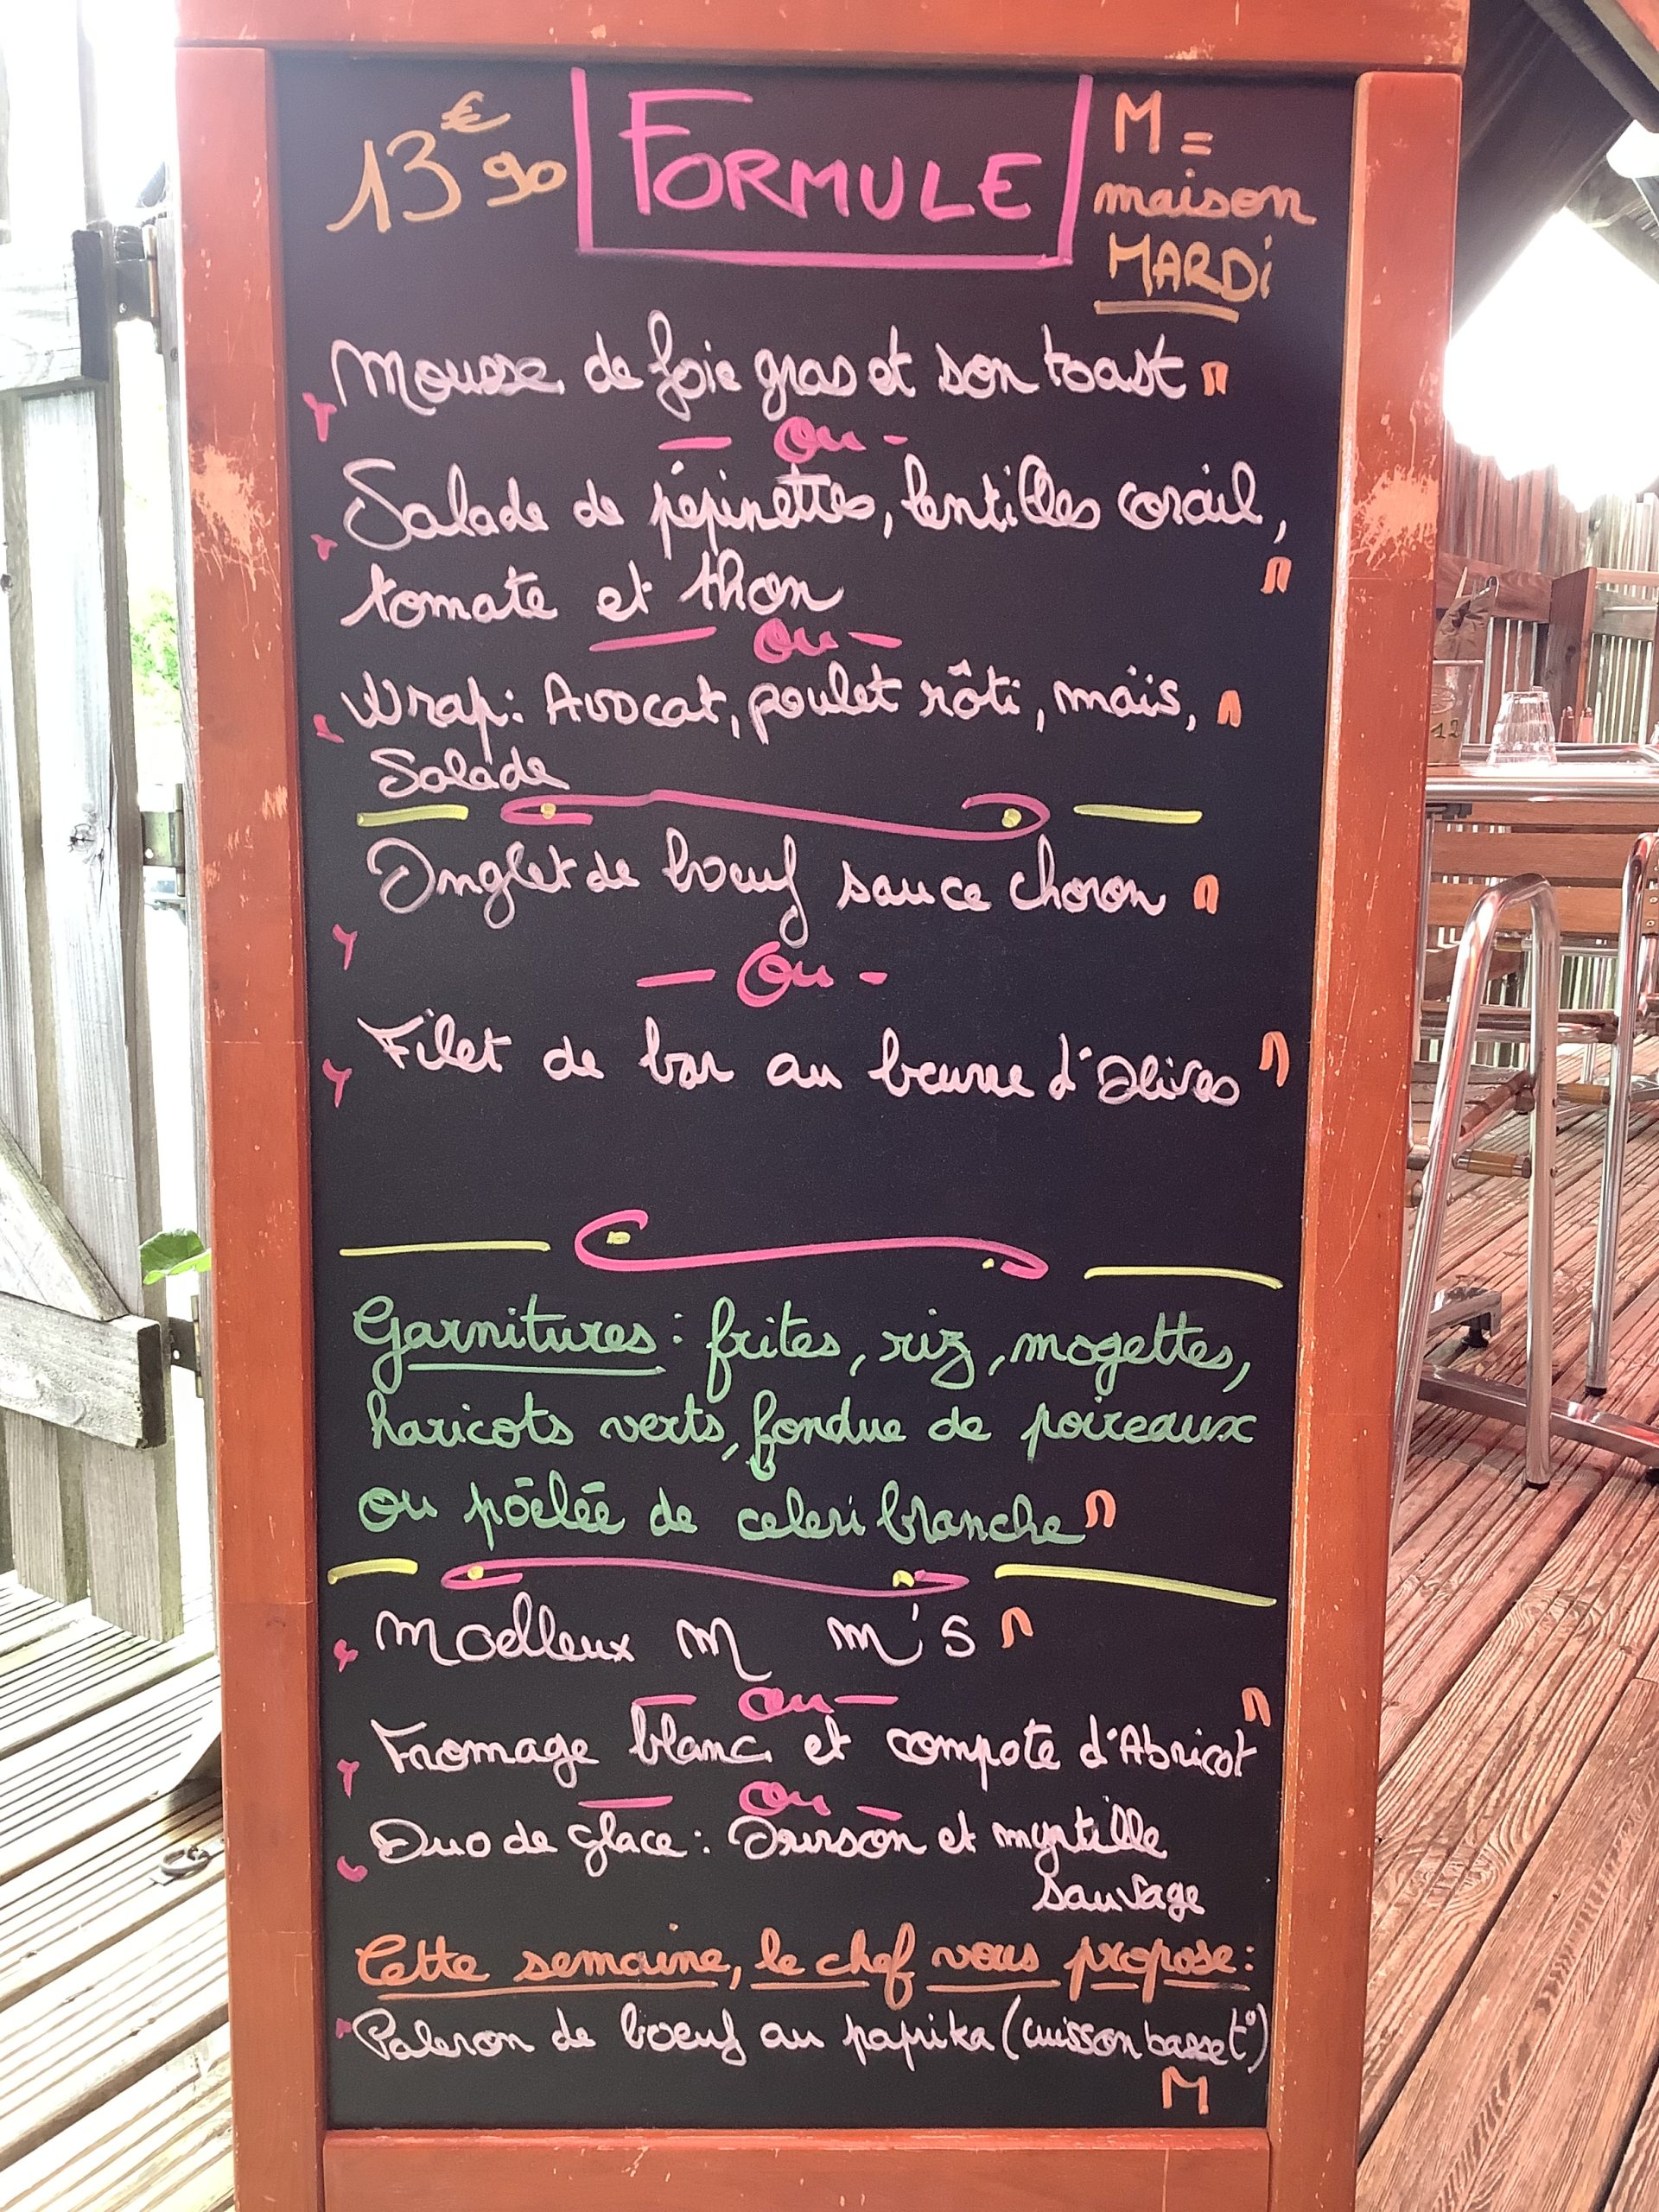 13€90 FORMULE M = maison
MARDi
Mousse de foie gras et son toast M
- ou -
Salade de pépinettes, lentilles corail,
tomate et thon M
- ou -
Wrap: Avocat, poulet rôti, maïs, M
Salade
Onglet de boeuf sauce choron M
- Ou -
Filet de bar au beurre d'olives M
Garnitures : frites, riz, mogettes,
haricots verts, fondue de poireaux
ou pôélée de celeri branche M
Moelleux M m's M
- ou -
Fromage blanc et compote d'Abricot M
- ou -
Duo de glace : Ourson et myrtille
sauvage
Cette semaine, le chef vous propose :
Paleron de boeuf au paprika (cuisson basse t°)
M
12